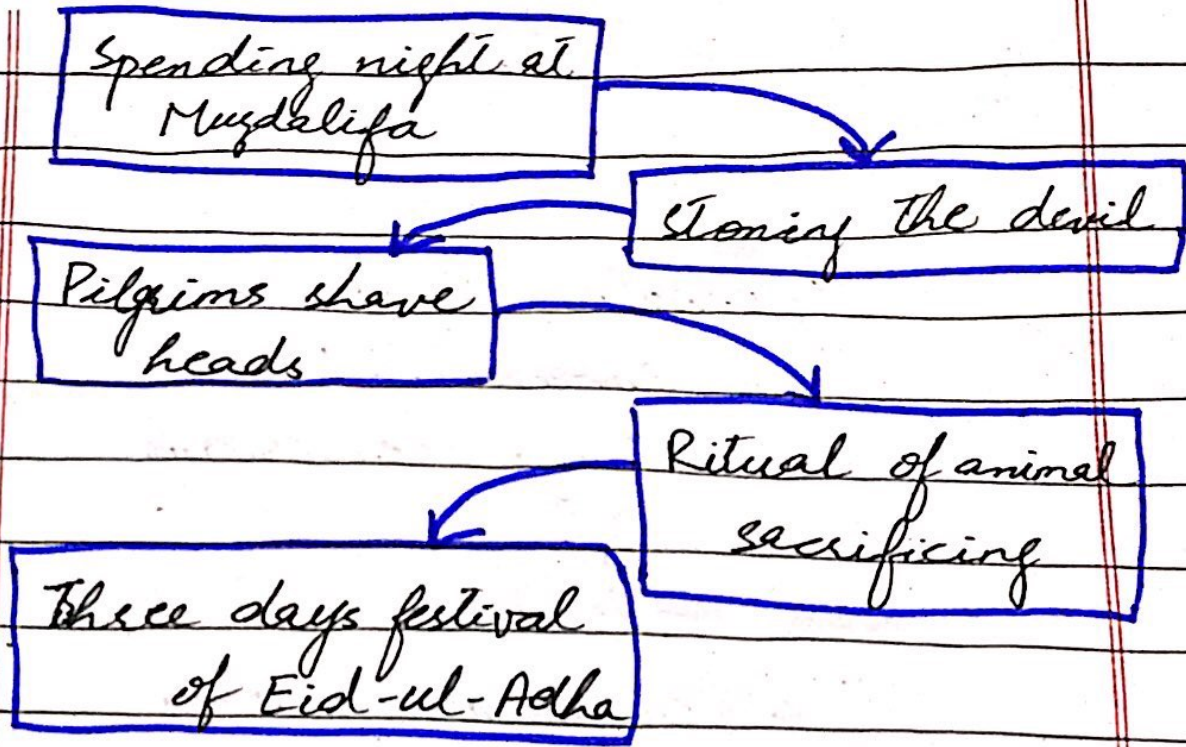 Spending night at
Muzdalifa
Stoning the devil
Pilgrims shave
heads
Ritual of animal
sacrificing
Three days festival
of Eid-ul-Adha